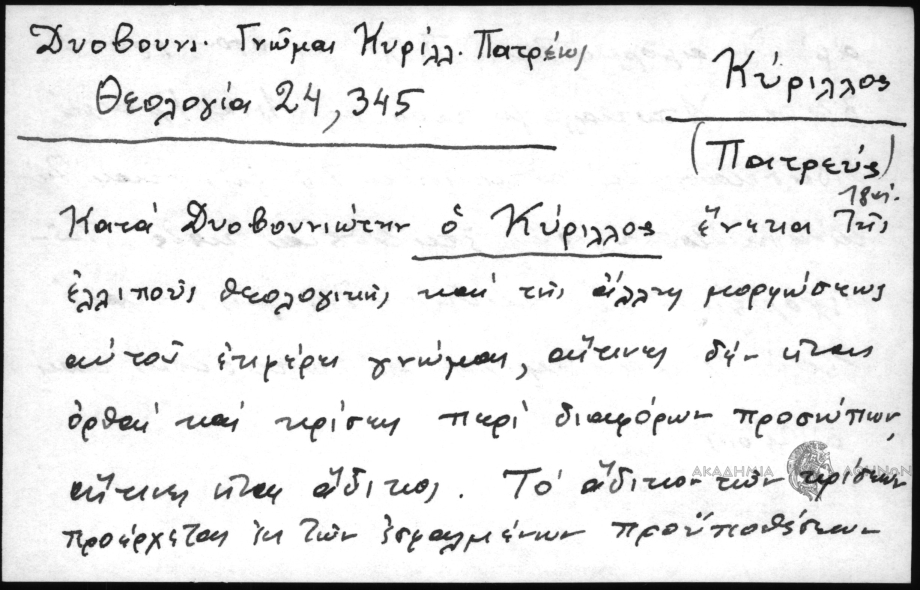 Δυοβουνι. Γνῶμαι Κυρίλλ. Πατρέως
Θεολογία 24, 345
Κύριλλος
(Πατρεύς)
18 αἰ.
Κατά Δυοβουνιώτην ὁ Κύριλλος ἕνεκα τῆς
ἐλλιποῦς θεολογικῆς καί τῆς ἄλλης μορφώσεως
αὐτοῦ ἐκφέρει γνώμας, αἵτινες δέν εἶναι
ὀρθαί καί κρίσεις περί διαφόρων προσώπων,
αἵτινες εἶναι ἄδικοι. Τό ἄδικον τῶν κρίσεων
ΑΚΑΔΗΜΙΑ ΑΘΗΝΩΝ
προέρχεται ἐκ τῶν ἐσφαλμένων προϋποθέσεων